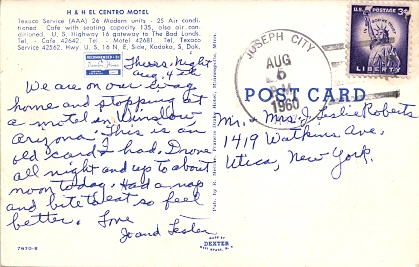 H & H EL CENTRO MOTEL
Texaco Service (AAA) 26 Modern units - 25 Air conditioned. Cafe with seating capacity 135, also air conditioned. U. S. Highway 16 gateway to The Bad Lands.
Tel. - Cafe 42642. Tel. - Motel 42681. Tel. Texaco
Service 42562. Hwy. U. S. 16 N. E. Side, Kadoka, S. Dak.
Thurs. Night
Aug. 4th
We are on our way
home and stopping at
a motel in Winslow
Arizona. This is an
old card I had. Drove
all night and up to about
noon today. Had a nap
and bite to eat so feel
better. Love
Jo and Lester
7670-B
JOSEPH CITY
AUG
5
1960
U.S. POSTAGE 3¢
LIBERTY
POST CARD
Mr. & Mrs. J. Leslie Roberts
1419 Watkins Ave.
Utica, New York.
Made by
DEXTER